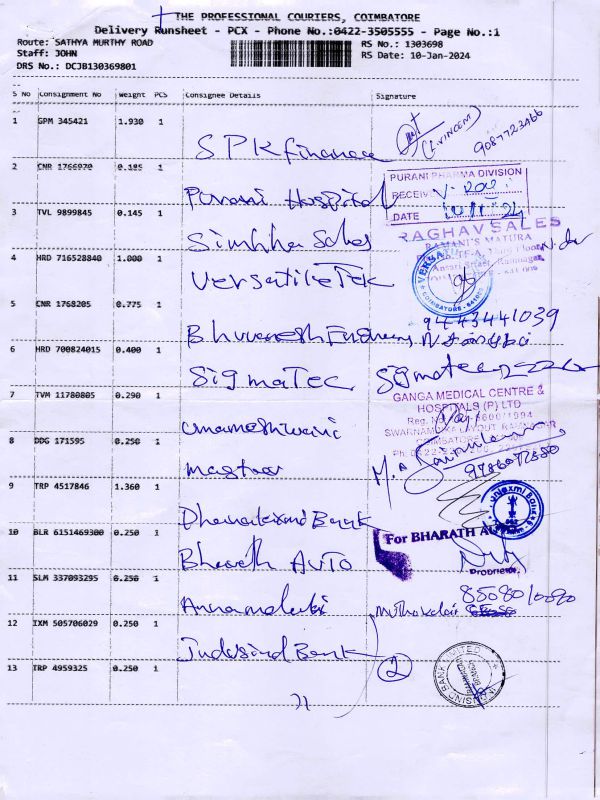 THE PROFESSIONAL COURIERS, COIMBATORE
Delivery Runsheet - PCX - Phone No.:0422-3505555 - Page No.:1
Route: SATHYA MURTHY ROAD
RS No.: 1303698
Staff: JOHN
RS Date: 10-Jan-2024
DRS No.: DCJB130369801
S No Consignment No Weight PCS Consignee Details Signature
1 GPM 345421 1.930 1
SPK finance
(L.VINCENT)
9087723466
2 CNR 1766970 0.185 1
Purani Hospital
PURANI PHARMA DIVISION
RECEIVED
DATE
3 TVL 9899845 0.145 1
Simhha Sales
RAGHAV SALES
RAMANI'S MATURA
4 HRD 716528840 1.000 1
Versatile Tek
VERSATILE
COIMBATORE
5 CNR 1768205 0.775 1
9443441039
6 HRD 700824015 0.400 1
Sigma Tec
Sigmatec
7 TVM 11780805 0.290 1
GANGA MEDICAL CENTRE &
HOSPITALS (P) LTD
SWARNAMBIKA LAYOUT, RAMNAGAR
COIMBATORE
8 DDG 171595 0.250 1
9 TRP 4517846 1.360 1
Dhanalaxmi Bank
10 BLR 6151469300 0.250 1
Bharath AUTO
For BHARATH AUTO
Proprietor
11 SLM 337093295 0.250 1
Annamalai
12 IXM 505706029 0.250 1
Indusind Bank
2
INDUSIND BANK LIMITED
13 TRP 4959325 0.250 1
11